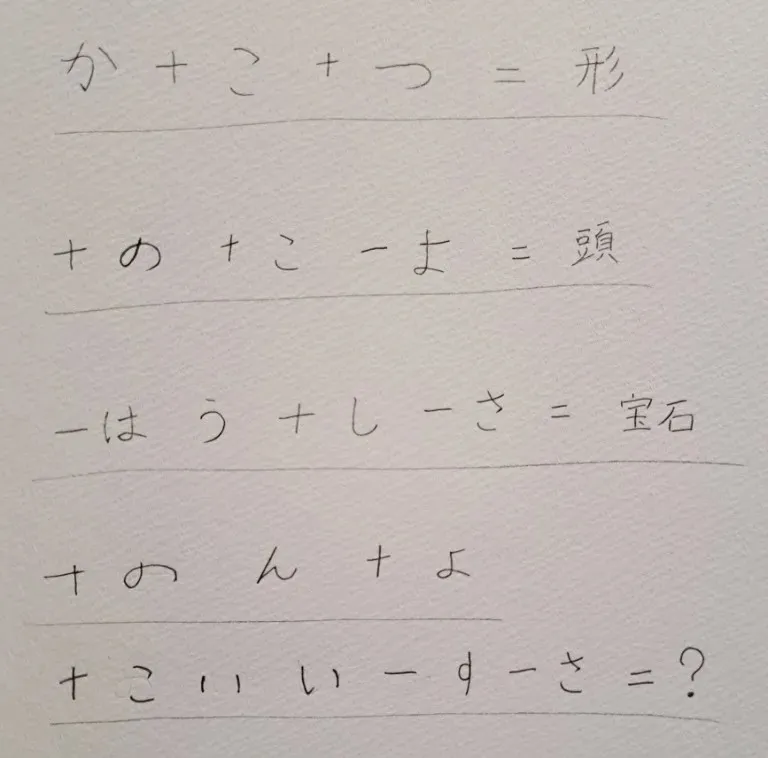 か + こ + つ = 形
+ の + こ - よ = 頭
- は う + し - さ = 宝石
+ の ん + よ
+ こ い い - す - さ = ?